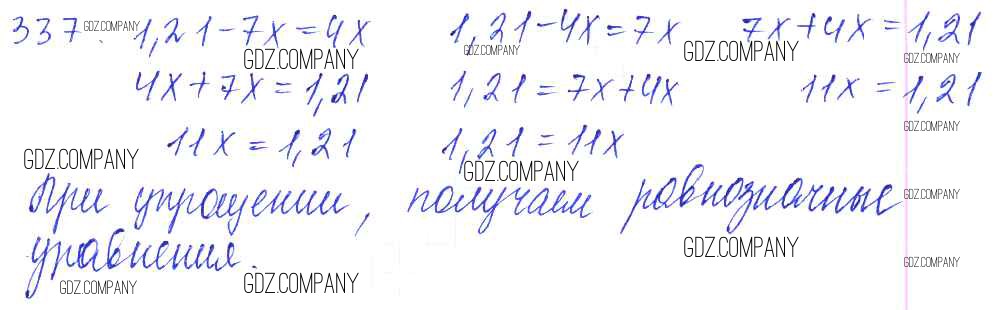 337. GDZ.COMPANY 1,21-7x=4x 1,21-4x=7x 7x+4x=1,21
GDZ.COMPANY GDZ.COMPANY GDZ.COMPANY GDZ.COMPANY
4x+7x=1,21 1,21=7x+4x 11x=1,21
GDZ.COMPANY
11x=1,21 1,21=11x
GDZ.COMPANY GDZ.COMPANY
При упрощении, получаем равнозначные
GDZ.COMPANY
уравнения.
GDZ.COMPANY GDZ.COMPANY
GDZ.COMPANY GDZ.COMPANY